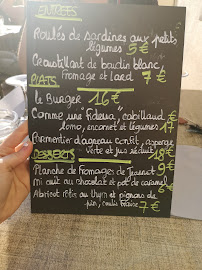 ENTRÉES
Roulés de sardines aux petits
légumes 5€
Croustillant de boudin blanc,
fromage et lard 7€
PLATS
le Burger 16€
Comme une "Fideua", cabillaud,
lomo, encornet et légumes 17€
Parmentier d'agneau confit, asperge
verte et jus réduit 18€
DESSERTS
Planche de fromages de Jeannot 9€
Mi cuit au chocolat et pot de caramel 6€
Abricot rôti au thym et pignons de
pin, coulis fraise 7€